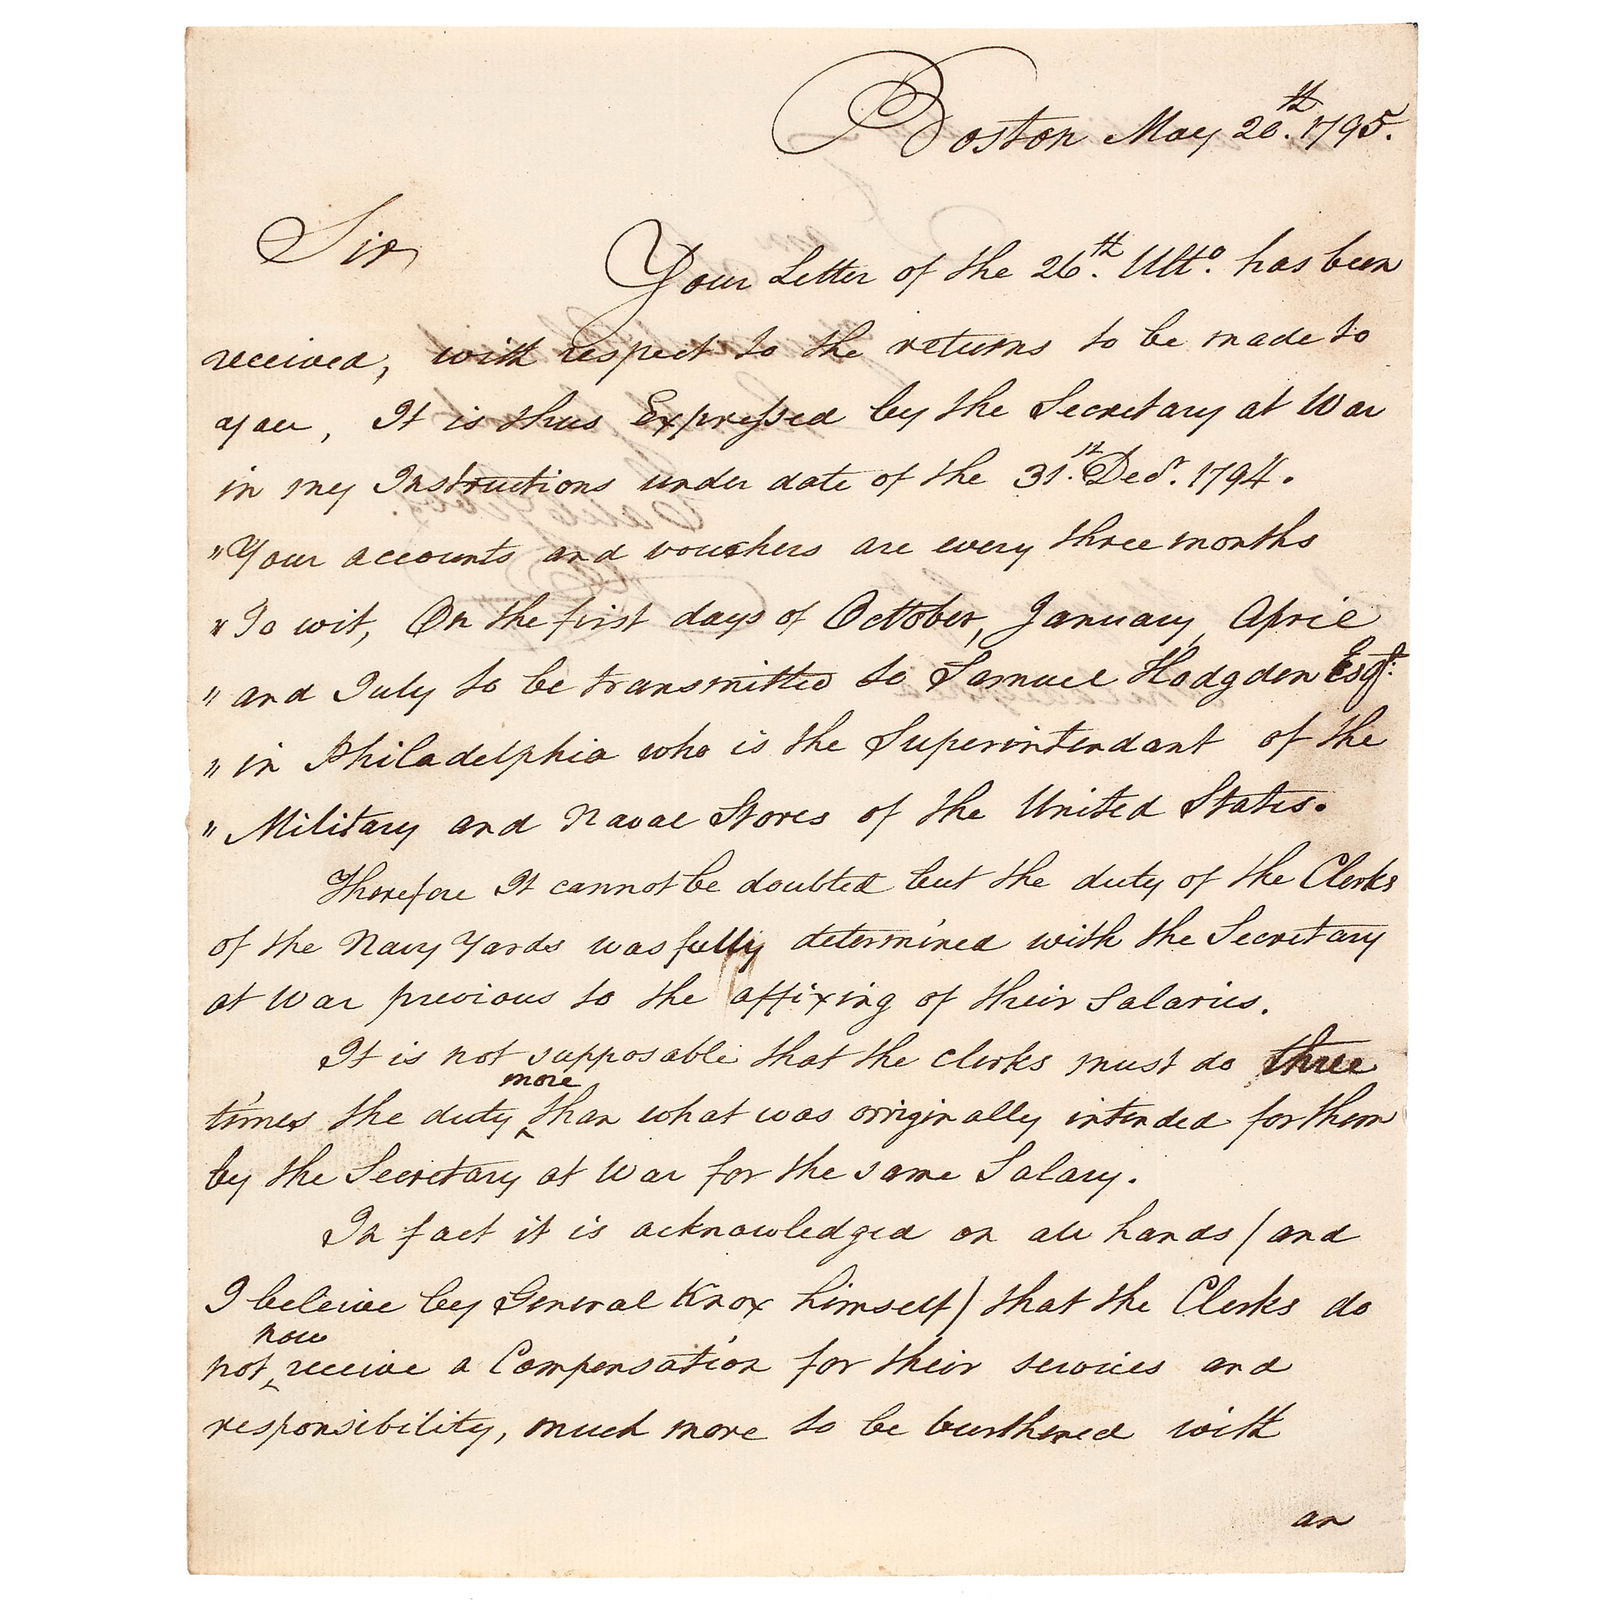 Boston May 20th. 1795.
Sir
Your Letter of the 26th. Ulto. has been
received, with respect to the returns to be made to
you, It is thus Expressed by the Secretary at War
in my Instructions under date of the 31st. Decr. 1794.
"Your accounts and vouchers are every three months
"To wit, On the first days of October, January, April
"and July to be transmitted to Samuel Hodgden Esqr:
"in Philadelphia who is the Superintendant of the
"Military and Naval Stores of the United States.
Therefore It cannot be doubted but the duty of the Clerks
of the Navy Yards was fully determined with the Secretary
at War previous to the affixing of their Salaries.
It is not supposable that the clerks must do three
more
times the duty ‸ than what was originally intended for them
by the Secretary at War for the same Salary.
In fact it is acknowledged on all hands / and
I beleive by General Knox himself / that the Clerks do
now
not ‸ receive a Compensation for their services and
responsibility, much more to be burthened with
an